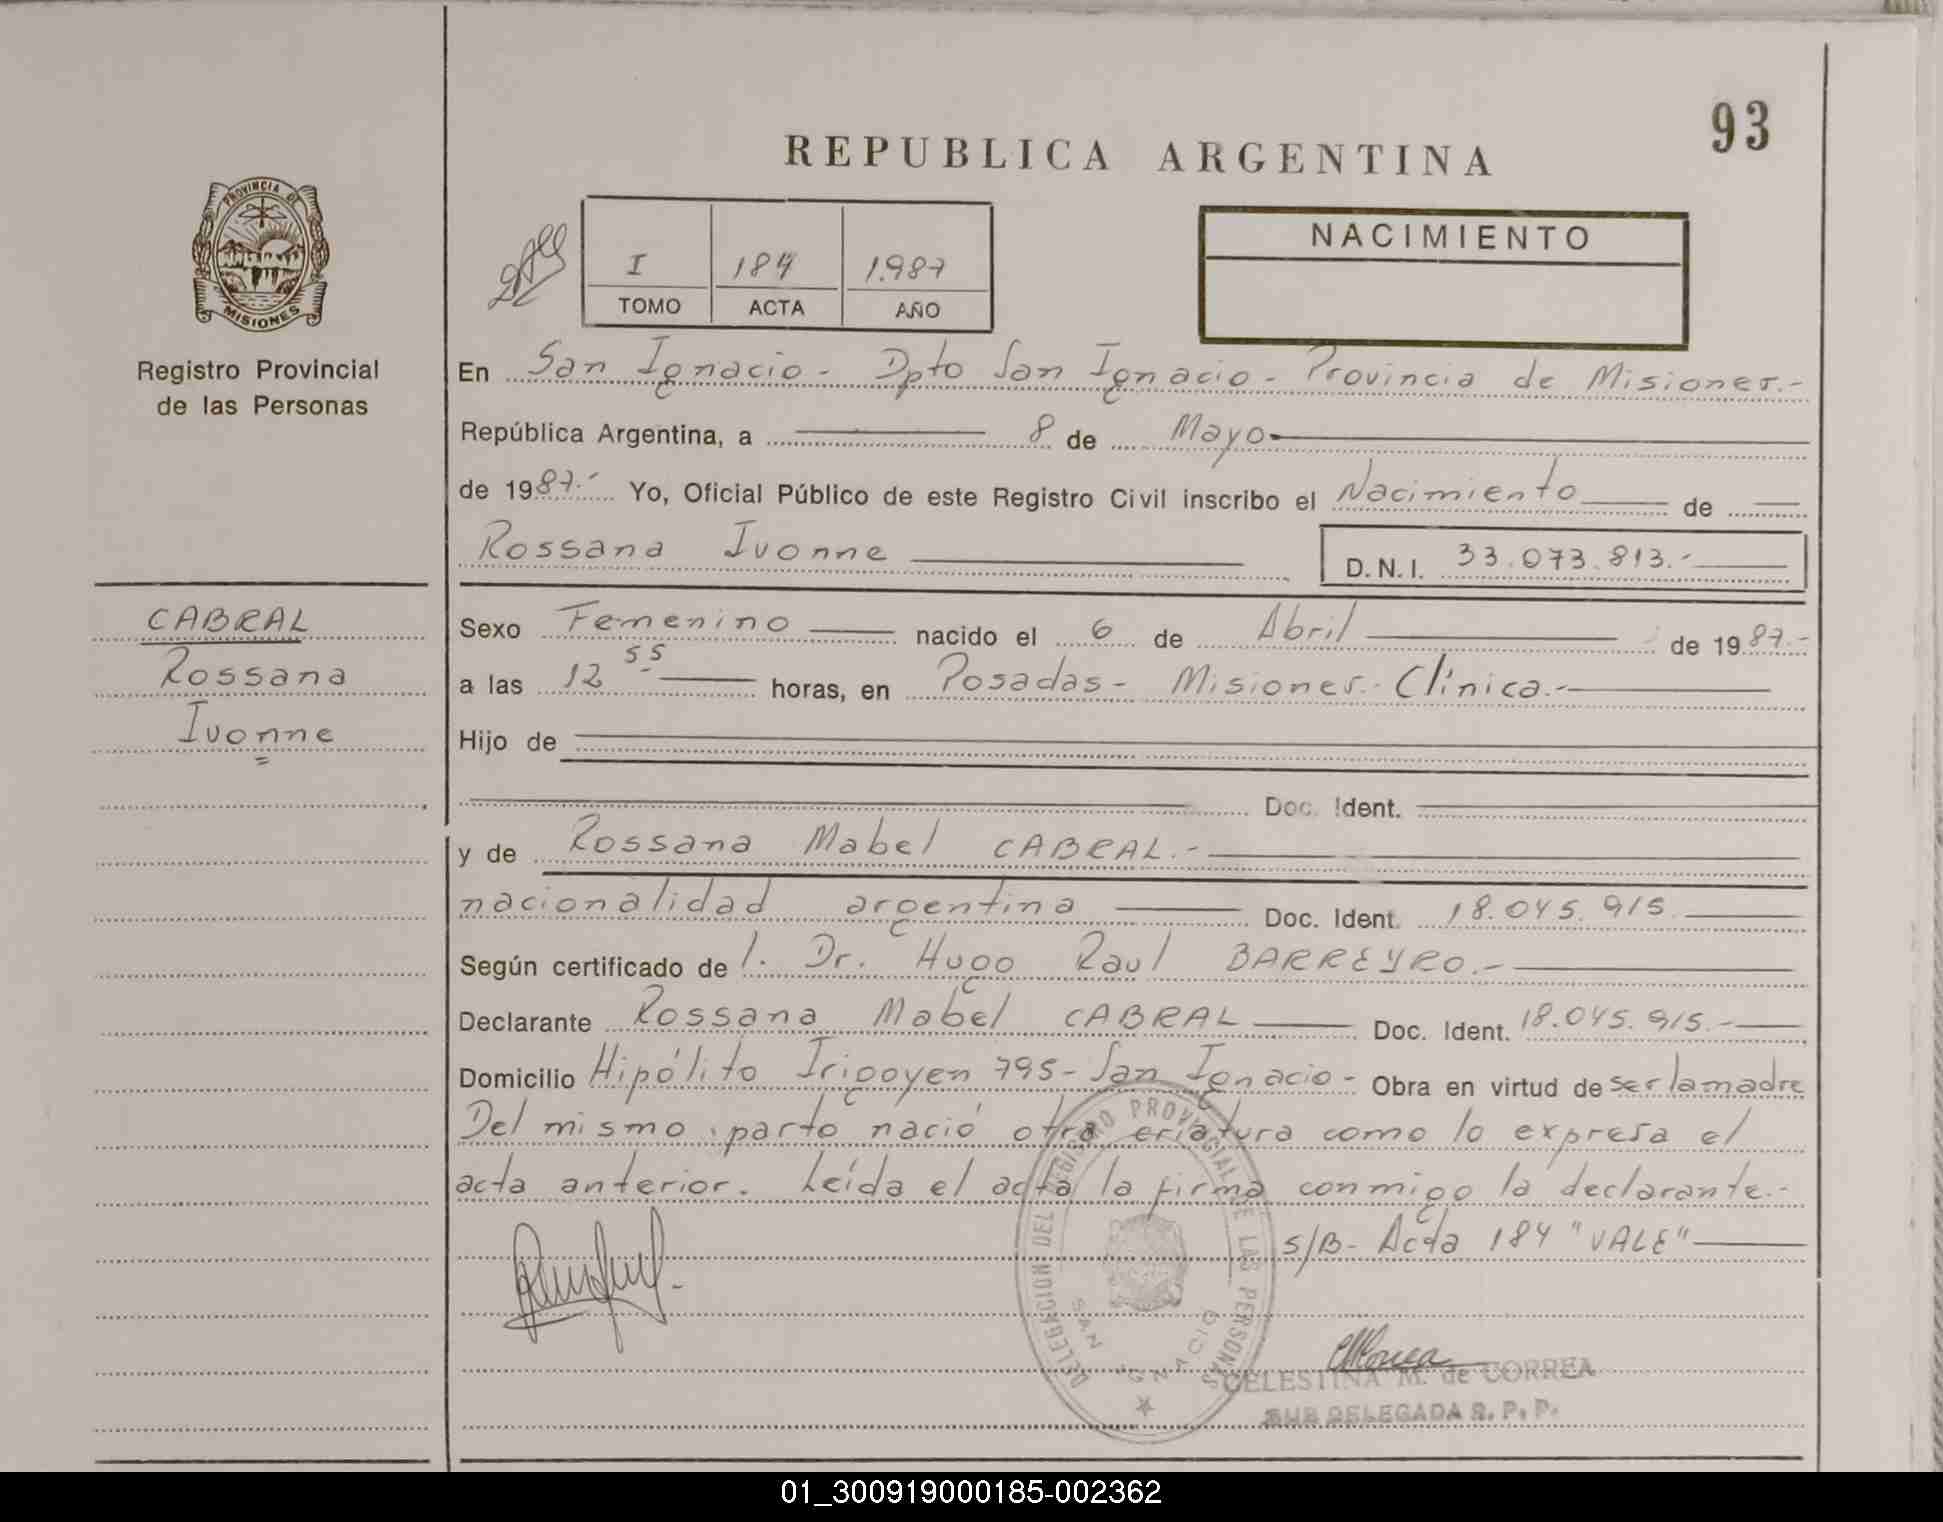 93
REPUBLICA ARGENTINA
PROVINCIA DE
MISIONES
Registro Provincial
de las Personas
I 184 1.987
TOMO ACTA AÑO
NACIMIENTO
En San Ignacio - Dpto San Ignacio - Provincia de Misiones.-
República Argentina, a 8 de Mayo
de 1987.- Yo, Oficial Público de este Registro Civil inscribo el Nacimiento de
Rossana Ivonne D.N.I. 33.073.813.-
CABRAL
Rossana
Ivonne
Sexo Femenino nacido el 6 de Abril de 1987.-
a las 12 55 horas, en Posadas - Misiones.- Clínica.-
Hijo de
Doc. Ident.
y de Rossana Mabel CABRAL.-
nacionalidad argentina Doc. Ident. 18.045.915.
Según certificado de l. Dr. Hugo Raul BARREYRO.-
Declarante Rossana Mabel CABRAL Doc. Ident. 18.045.915.-
Domicilio Hipólito Irigoyen 795 - San Ignacio - Obra en virtud de ser la madre
Del mismo parto nació otra criatura como lo expresa el
acta anterior. Leída el acta la firma conmigo la declarante.-
S/B - Acta 184 "VALE"
DELEGACION DEL REGISTRO PROVINCIAL DE LAS PERSONAS
SAN IGNACIO
CELESTINA M. de CORREA
SUB DELEGADA R. P. P.
01_300919000185-002362